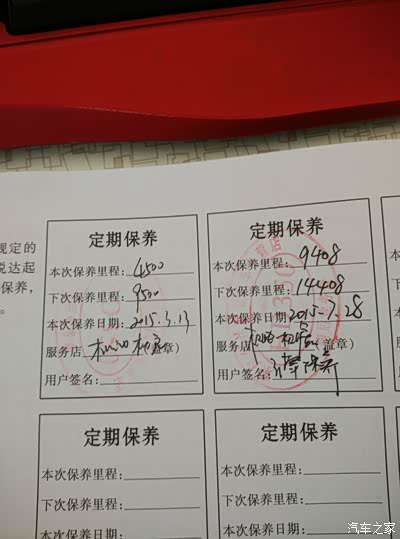 规定的
说达起
保养,
。
定期保养
本次保养里程: 4500
下次保养里程: 9500
本次保养日期: 2015.3.13
服务店 (盖章)
用户签名:
定期保养
本次保养里程: 9408
下次保养里程: 14408
本次保养日期 2015-7-28
服务店: (盖章)
用户签名: 保养
定期保养
本次保养里程:
下次保养里程:
本次保养日期:
定期保养
本次保养里程:
下次保养里程:
本次保养日期:
汽车之家